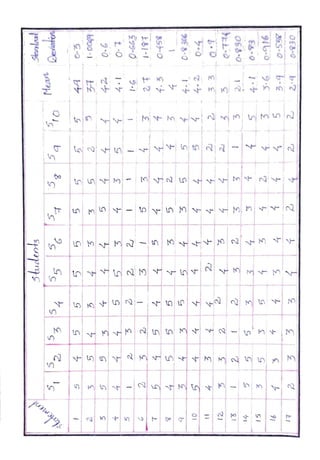 Students
Statement S1 S2 S3 S4 S5 S6 S7 S8 S9 S10 Mean Standard Deviation
1 5 4 5 5 5 5 5 5 5 5 4.9 0.3
2 3 5 4 3 4 3 3 5 2 5 3.7 1.0049
3 5 5 3 4 4 4 5 4 4 4 4.2 0.6
4 4 4 4 5 5 3 4 3 5 4 4.1 0.7
5 1 2 3 2 2 2 1 1 1 1 1.6 0.663
6 2 3 2 1 3 1 5 3 4 3 2.7 1.187
7 5 4 5 4 4 5 4 4 4 4 4.3 0.458
8 4 5 5 5 4 3 5 2 4 3 4 1
9 3 4 3 5 5 4 3 5 5 4 4.1 0.8306
10 5 4 4 4 4 4 4 4 5 4 4.2 0.4
11 4 3 4 4 2 4 4 4 2 2 3.3 0.9
12 3 3 2 2 4 3 4 4 2 3 3 0.774
13 1 2 1 2 3 2 3 3 1 3 2.1 0.830
14 5 5 5 3 3 4 4 3 4 5 4.1 0.83
15 3 5 3 5 4 3 4 2 4 3 3.6 0.916
16 4 3 4 4 3 4 4 4 4 5 3.9 0.538
17 2 3 3 3 4 4 2 4 2 2 2.9 0.830